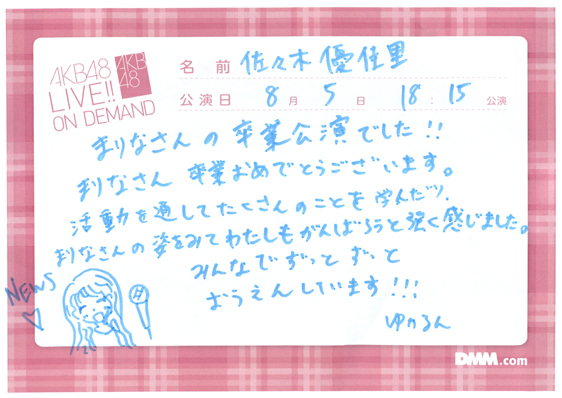 AKB48
LIVE!!
ON DEMAND
AKB
48
名 前 佐々木優佳里
公演日 8 月 5 日 18 : 15 公演
まりなさんの卒業公演でした!!
まりなさん 卒業おめでとうございます。
活動を通してたくさんのことを学んだり、
まりなさんの姿をみてわたしもがんばろうと強く感じました。
みんなでずっとずっと
おうえんしています!!!
ゆかるん
NEWS
♡
DMM.com